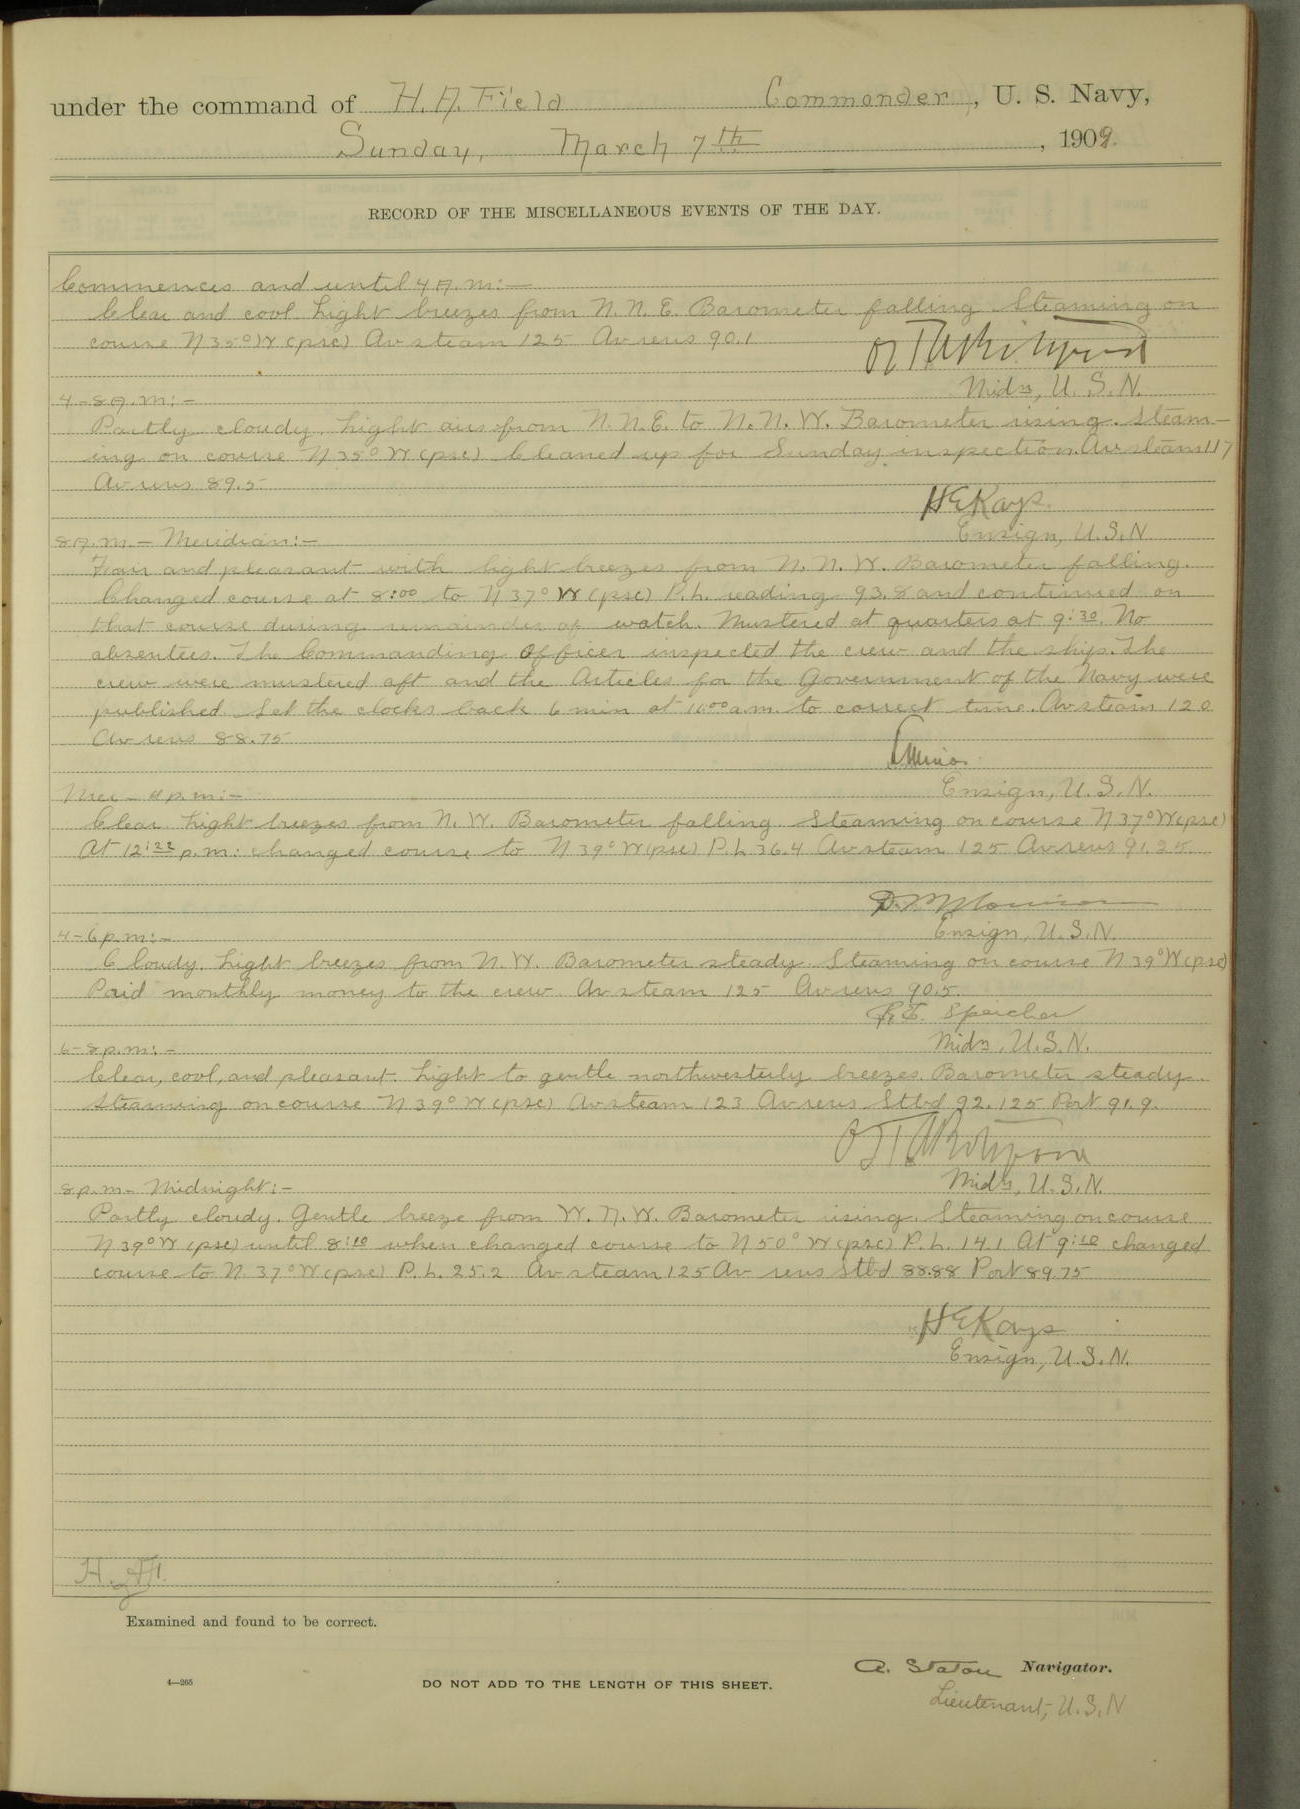 under the command of H. A. Field Commander, U. S. Navy,
Sunday, March 7th, 1909.
RECORD OF THE MISCELLANEOUS EVENTS OF THE DAY.
Commences and until 4 A.m:—
Clear and cool Light breezes from N. N. E. Barometer falling. Steaming on
course N 35° W (psc) Av steam 125 Av revs 90.1
Midn, U. S. N.
4-8 A.m:-
Partly cloudy. Light airs from N. N. E. to N. N. W. Barometer rising. Steam-
ing on course N 35° W (psc) Cleaned up for Sunday inspection. Av steam 117
Av revs 89.5
H E Kays.
Ensign, U. S. N.
8 A.m. - Meridian:-
Fair and pleasant with light breezes from N. N. W. Barometer falling.
Changed course at 8:00 to N 37° W (psc) P. L. reading 93.8 and continued on
that course during remainder of watch. Mustered at quarters at 9:30. No
absentees. The Commanding Officer inspected the crew and the ship. The
crew were mustered aft and the Articles for the Government of the Navy were
published. Set the clocks back 6 min at 11:00 a.m. to correct time. Av steam 120
Av revs 88.75
Ensign, U. S. N.
Mer - 4 p.m:-
Clear. Light breezes from N. W. Barometer falling. Steaming on course N 37° W (psc)
At 12:22 p.m: changed course to N 39° W (psc) P. L 36.4 Av steam 125 Av revs 91.25
Ensign, U. S. N.
4-6 p.m:-
Cloudy. Light breezes from N. W. Barometer steady. Steaming on course N 39° W (psc)
Paid monthly money to the crew. Av steam 125 Av revs 90.5.
Speicher
Midn, U. S. N.
6-8 p.m:-
Clear, cool, and pleasant. Light to gentle northwesterly breezes. Barometer steady.
Steaming on course N 39° W (psc) Av steam 123 Av revs Stbd 92.125 Port 91.9.
Midn, U. S. N.
8 p.m - Midnight:-
Partly cloudy. Gentle breeze from W. N. W. Barometer rising. Steaming on course
N 39° W (psc) until 8:10 when changed course to N 50° W (psc) P. L. 14.1 At 9:10 changed
course to N. 37° W (psc) P. L. 25.2 Av steam 125 Av revs Stbd 88.88 Port 89.75
H E Kays
Ensign, U. S. N.
Examined and found to be correct.
A. Staton Navigator.
4—265 DO NOT ADD TO THE LENGTH OF THIS SHEET.
Lieutenant, U. S. N